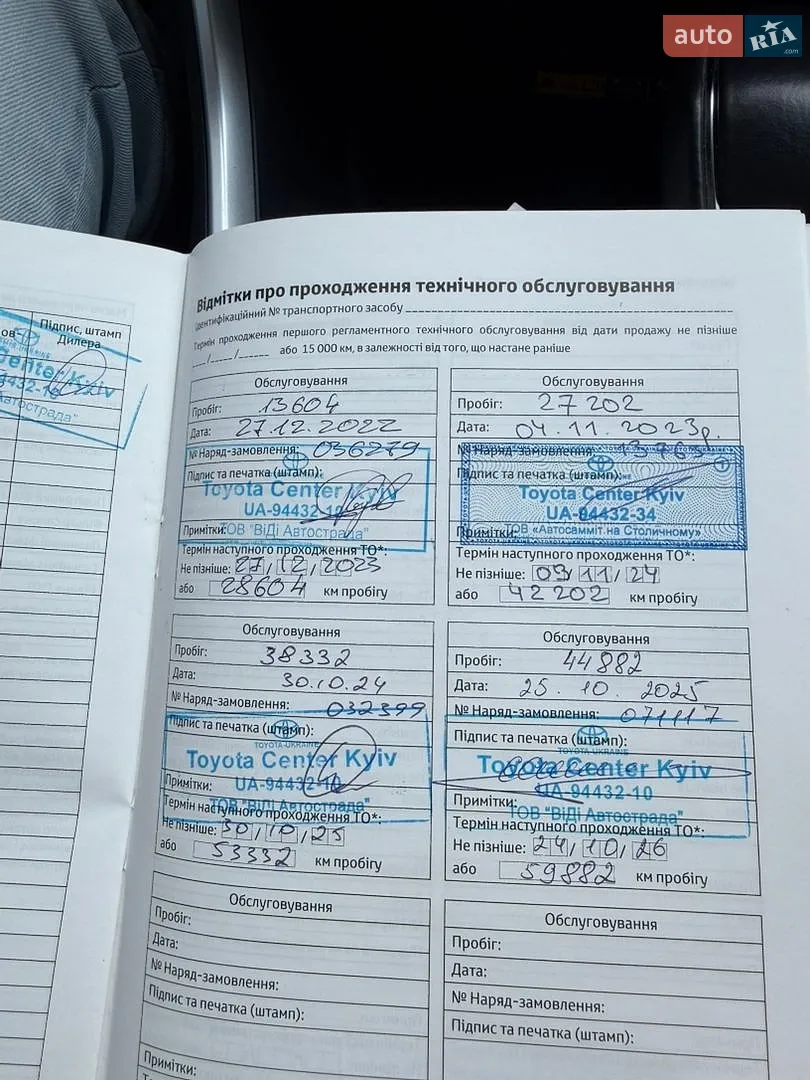 auto RIA.com
Підпис, штамп
Дилера
Відмітки про проходження технічного обслуговування
Ідентифікаційний № транспортного засобу
Термін проходження першого регламентного технічного обслуговування від дати продажу не пізніше
__/__/____ або 15 000 км, в залежності від того, що настане раніше
Обслуговування
Пробіг: 13604
Дата: 27.12.2022
№ Наряд-замовлення: 036279
Підпис та печатка (штамп):
Toyota Center Kyiv
UA-94432-10
Примітки:
ТОВ "ВіДі Автострада"
Термін наступного проходження ТО*:
Не пізніше: 27/12/2023
або 28604 км пробігу
Обслуговування
Пробіг: 27202
Дата: 04.11.2023р.
№ Наряд-замовлення:
Підпис та печатка (штамп):
Toyota Center Kyiv
UA-94432-34
Примітки:
ТОВ «Автосамміт на Столичному»
Термін наступного проходження ТО*:
Не пізніше: 03/11/24
або 42202 км пробігу
Обслуговування
Пробіг: 38332
Дата: 30.10.24
№ Наряд-замовлення: 032399
Підпис та печатка (штамп):
TOYOTA-UKRAINE
Toyota Center Kyiv
UA-94432-10
Примітки:
ТОВ "ВіДі Автострада"
Термін наступного проходження ТО*:
Не пізніше: 30/10/25
або 53332 км пробігу
Обслуговування
Пробіг: 44882
Дата: 25.10.2025
№ Наряд-замовлення: 071117
Підпис та печатка (штамп):
TOYOTA-UKRAINE
Toyota Center Kyiv
UA-94432-10
Примітки:
ТОВ "ВіДі Автострада"
Термін наступного проходження ТО*:
Не пізніше: 24/10/26
або 59882 км пробігу
Обслуговування
Пробіг:
Дата:
№ Наряд-замовлення:
Підпис та печатка (штамп):
Примітки:
Обслуговування
Пробіг:
Дата:
№ Наряд-замовлення:
Підпис та печатка (штамп):